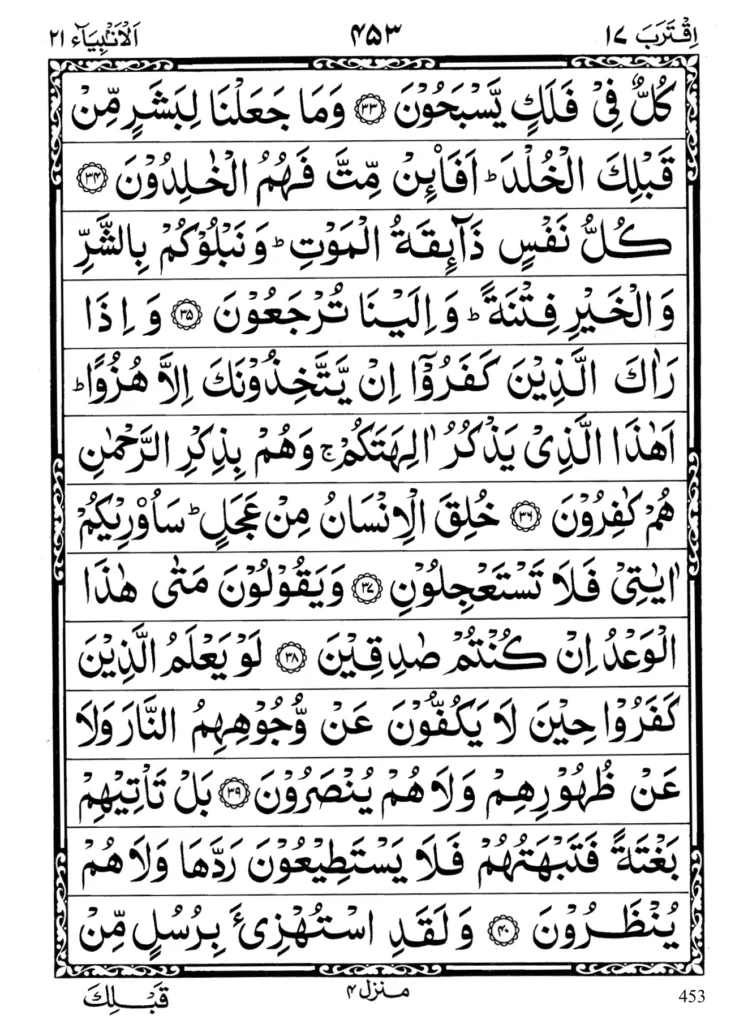 اِقْتَرَبَ ١٧ ٤٥٣ اَلْاَنْۢبِيَآء ٢١
كُلٌّ فِىْ فَلَكٍ يَّسْبَحُوْنَ ۝٣٣ وَمَا جَعَلْنَا لِبَشَرٍ مِّنْ
قَبْلِكَ الْخُلْدَ ؕ اَفَا۟ئِنْ مِّتَّ فَهُمُ الْخٰلِدُوْنَ ۝٣٤
كُلُّ نَفْسٍ ذَآئِقَةُ الْمَوْتِ ؕ وَنَبْلُوْكُمْ بِالشَّرِّ
وَالْخَيْرِ فِتْنَةً ؕ وَاِلَيْنَا تُرْجَعُوْنَ ۝٣٥ وَاِذَا
رَاٰكَ الَّذِيْنَ كَفَرُوْٓا اِنْ يَّتَّخِذُوْنَكَ اِلَّا هُزُوًا ؕ
اَهٰذَا الَّذِىْ يَذْكُرُ اٰلِهَتَكُمْ ۚ وَهُمْ بِذِكْرِ الرَّحْمٰنِ
هُمْ كٰفِرُوْنَ ۝٣٦ خُلِقَ الْاِنْسَانُ مِنْ عَجَلٍ ؕ سَاُورِيْكُمْ
اٰيٰتِىْ فَلَا تَسْتَعْجِلُوْنِ ۝٣٧ وَيَقُوْلُوْنَ مَتٰى هٰذَا
الْوَعْدُ اِنْ كُنْتُمْ صٰدِقِيْنَ ۝٣٨ لَوْ يَعْلَمُ الَّذِيْنَ
كَفَرُوْا حِيْنَ لَا يَكُفُّوْنَ عَنْ وُّجُوْهِهِمُ النَّارَ وَلَا
عَنْ ظُهُوْرِهِمْ وَلَا هُمْ يُنْصَرُوْنَ ۝٣٩ بَلْ تَاْتِيْهِمْ
بَغْتَةً فَتَبْهَتُهُمْ فَلَا يَسْتَطِيْعُوْنَ رَدَّهَا وَلَا هُمْ
يُنْظَرُوْنَ ۝٤٠ وَلَقَدِ اسْتُهْزِئَ بِرُسُلٍ مِّنْ
453 منزل ٤ قَبْلِكَ